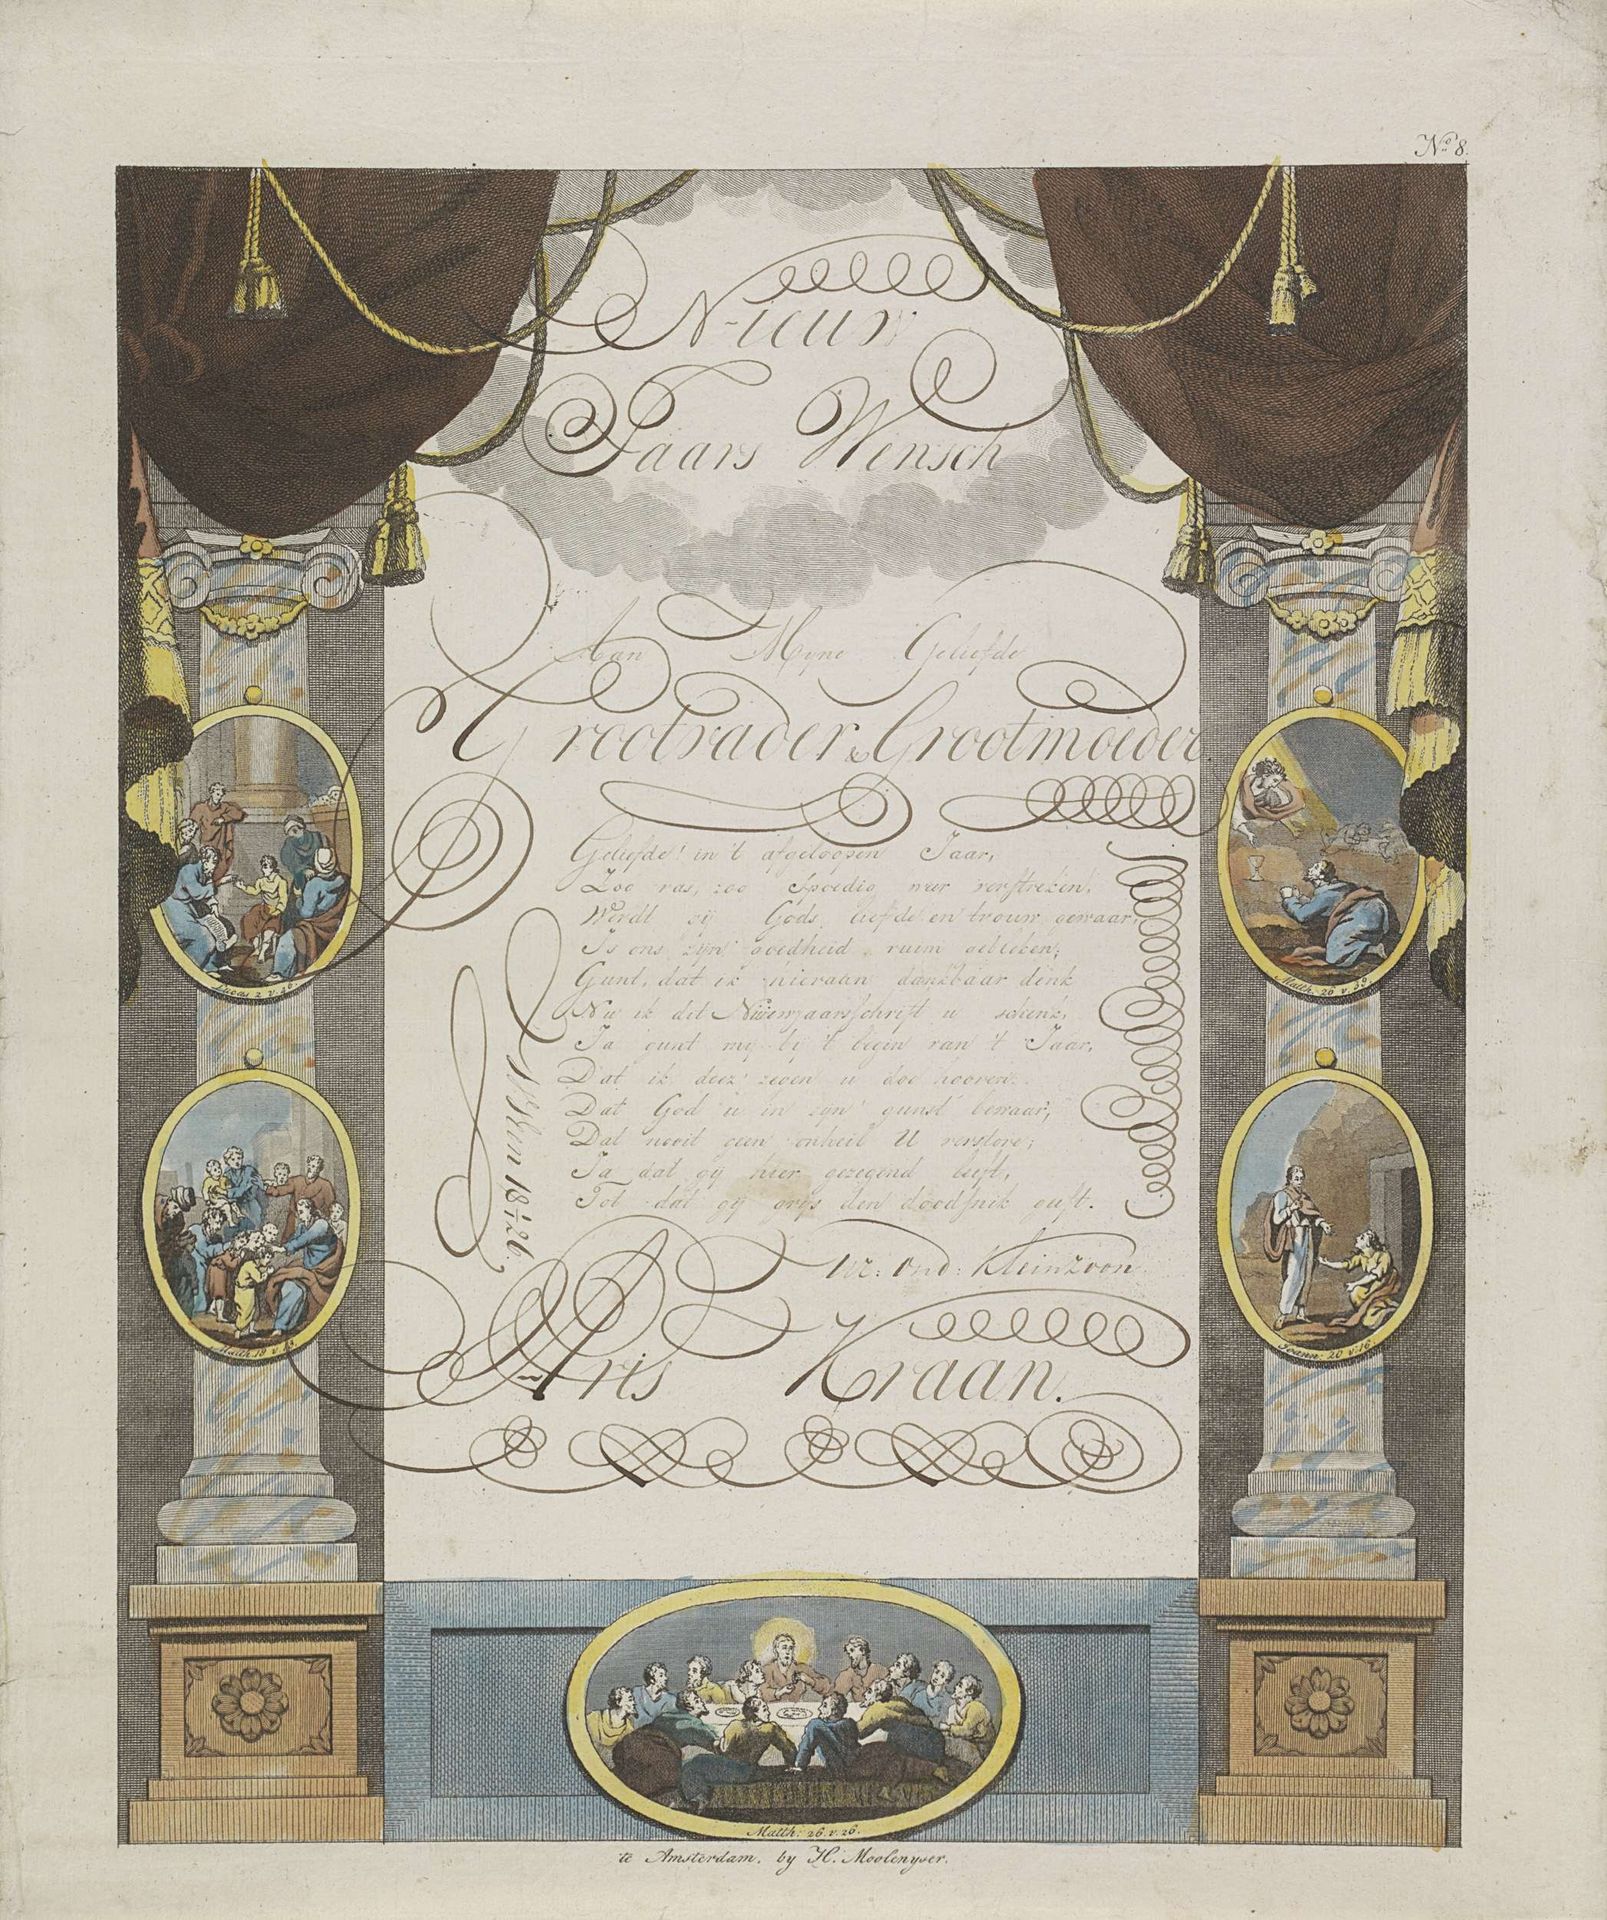 No. 8.
Nieuw
Jaars Wensch
Aan Myne Geliefde
Grootvader & Grootmoeder.
Geliefde! in 't afgeloopen Jaar,
Zoo ras, zoo spoedig weer verstreken;
Werdt gij Gods liefde en trouw gewaar,
Is ons zijn' goedheid ruim gebleken;
Gunt, dat ik hieraan dankbaar denk
Nu ik dit Nieuwjaarsschrift u schenk,
Ja gunt mij bij 't begin van 't Jaar,
Dat ik deez' zegen u doe hooren:
Dat God u in zijn' gunst bewaar,
Dat nooit geen onheil U verstore;
Ja dat gij hier gezegend leeft,
Tot dat gij grijs den doodsnik geeft.
Uw: Ond: Kleinzoon
Aris Kraan.
1826.
Lucas 2 v. 46.
Matth. 19 v 13.
Matth. 26 v. 39.
Joann: 20 v. 16.
Matth: 26. v. 26.
te Amsterdam, by H. Moolenyser.